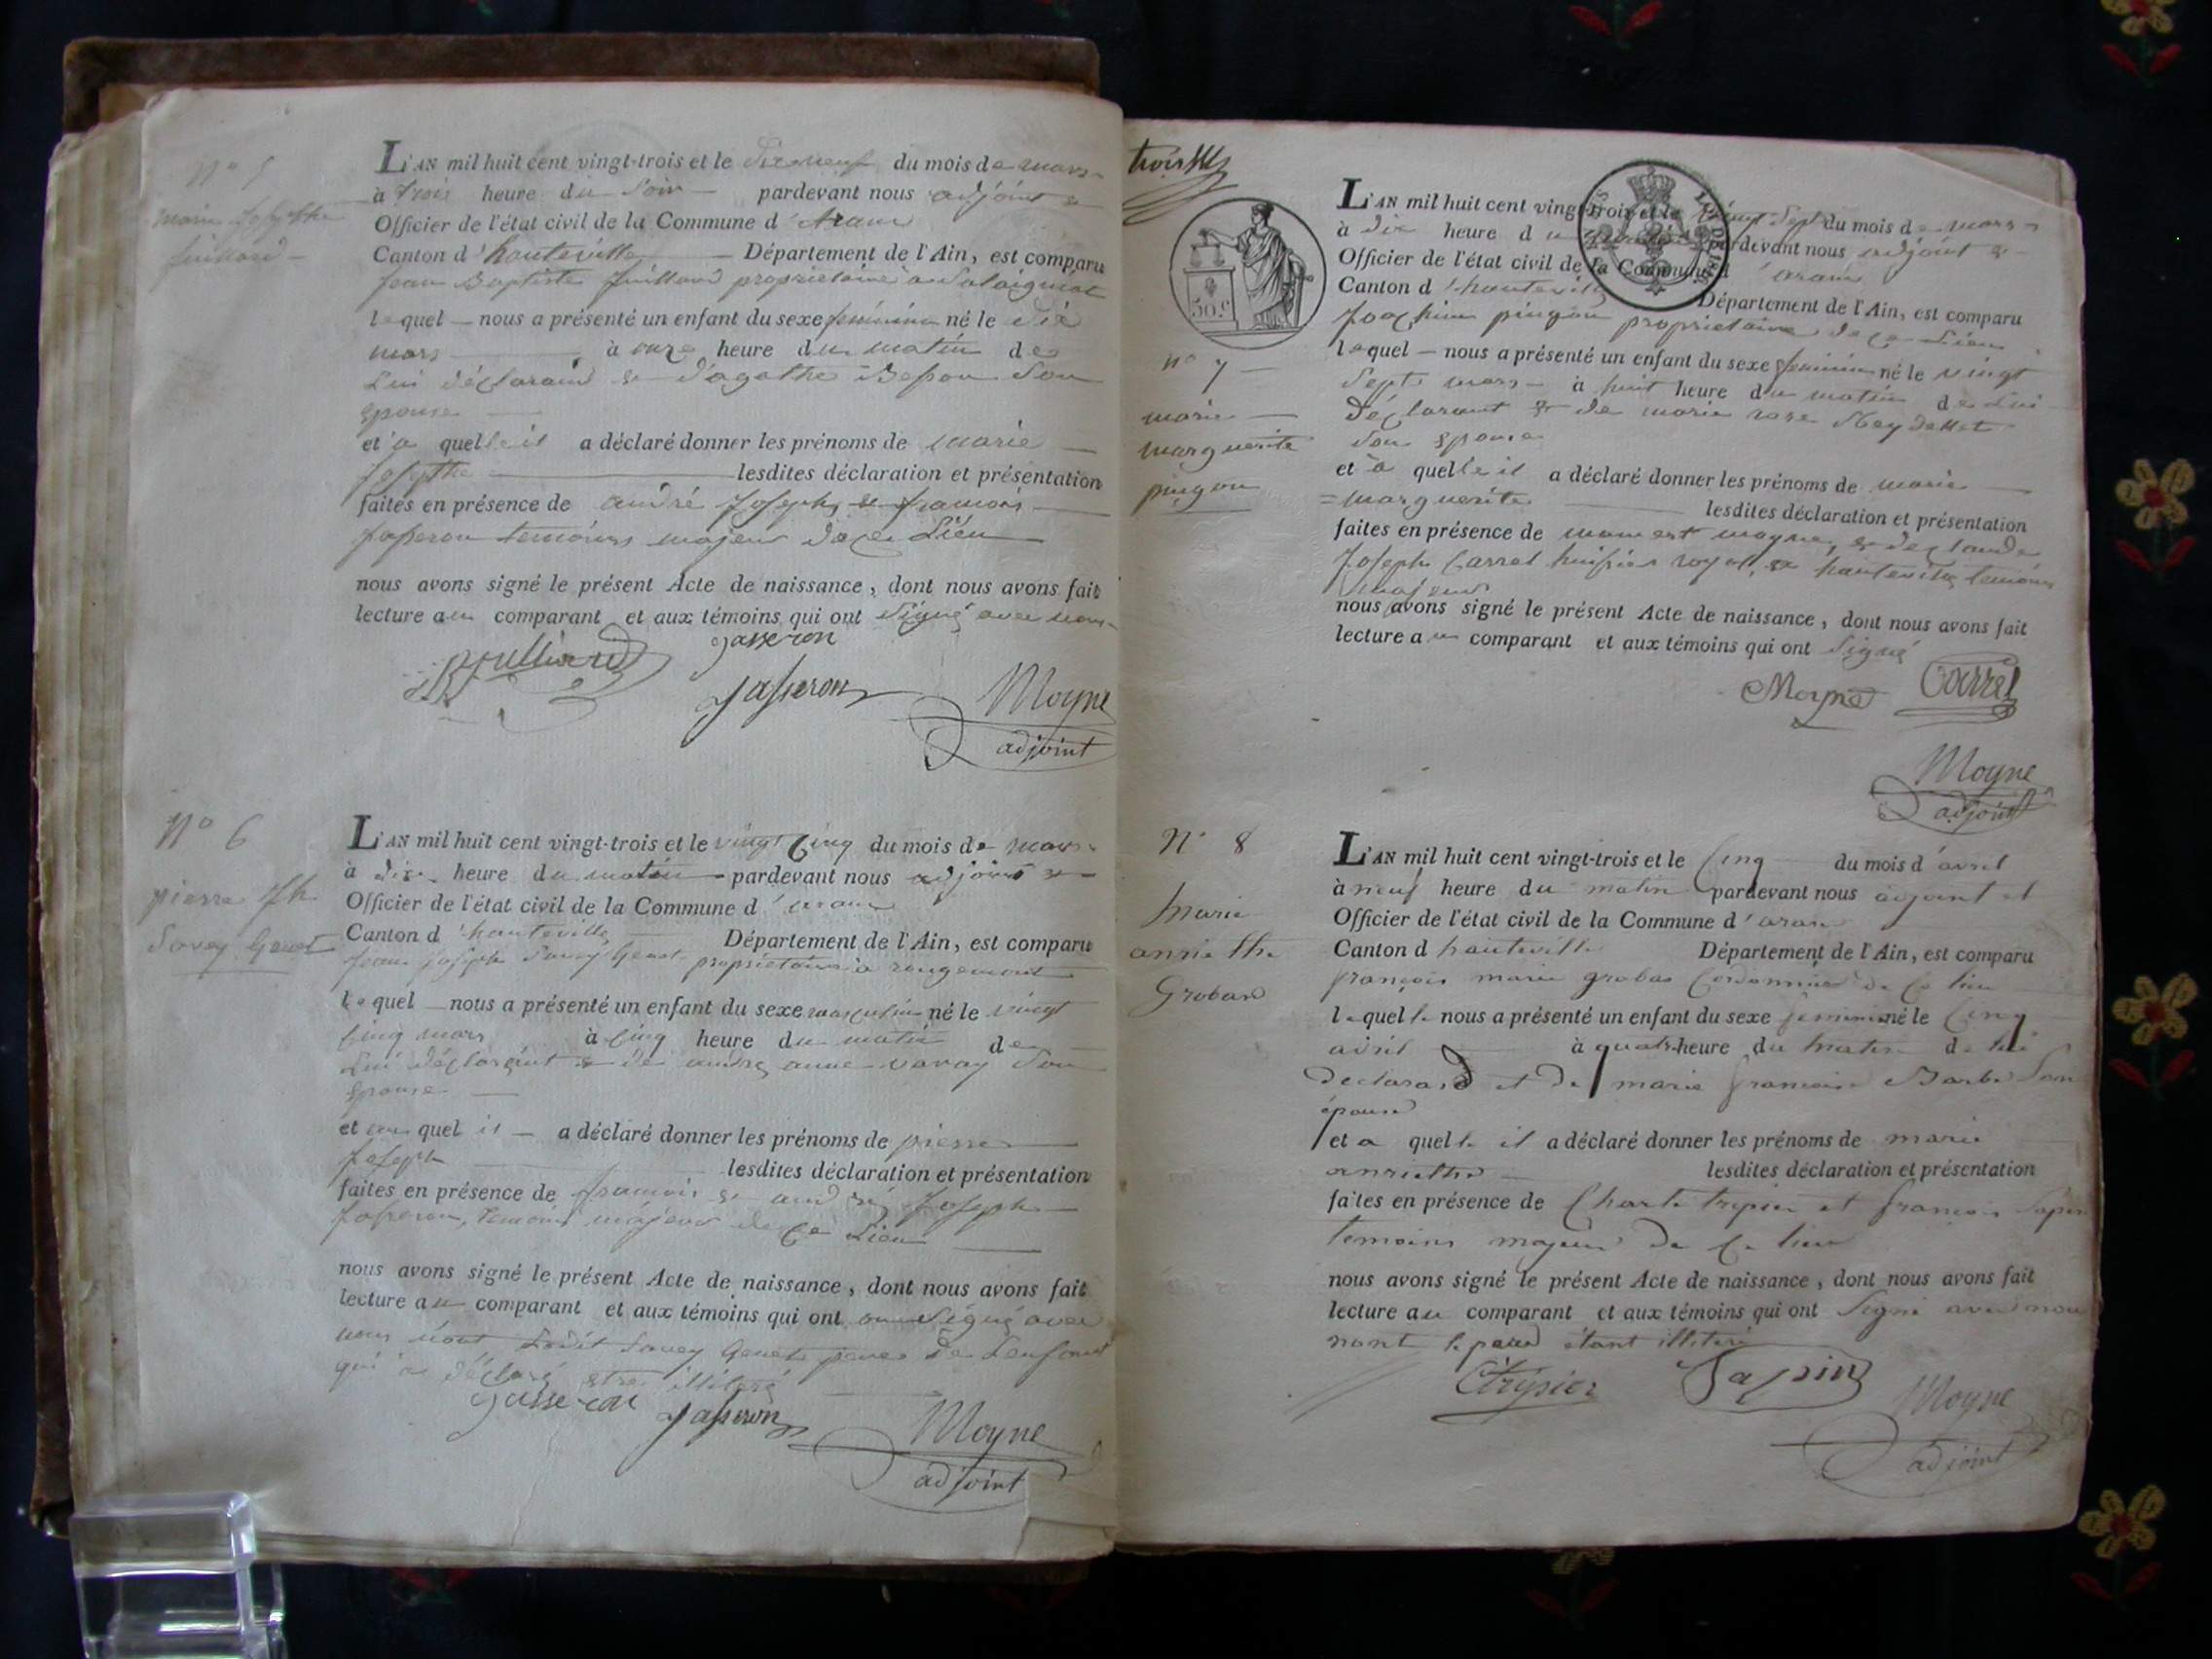 N° 5
marie Josephte
juillard
L'AN mil huit cent vingt-trois et le dix neuf du mois de mars
à trois heure du soir pardevant nous adjoint &
Officier de l'état civil de la Commune d'aranc
Canton d'hauteville Département de l'Ain, est comparu
Jean Baptiste Juillard proprietaire a
lequel nous a présenté un enfant du sexe feminin né le dix
mars à onze heure du matin de
Lui déclarand & d'agathe Besson Son
Epouse
et a quelle il a déclaré donner les prénoms de marie
Josephte lesdites déclaration et présentation
faites en présence de andré Joseph & francois
Jasseron temoins majeur de ce Lieu
nous avons signé le présent Acte de naissance, dont nous avons fait
lecture au comparant et aux témoins qui ont Signé avec nous
JB Julliard Jasseron
Jasseron Moyne
adjoint
N° 6
pierre Jh
Savey Genet
L'AN mil huit cent vingt-trois et le vingt Cinq du mois de mars
à dix heure du matin pardevant nous adjoint &
Officier de l'état civil de la Commune d'aranc
Canton d'hauteville Département de l'Ain, est comparu
Jean Joseph Savey Genet proprietaire a rougemont
lequel nous a présenté un enfant du sexe masculin né le vingt
Cinq mars à Cinq heure du matin de
Lui déclarant & de andre anne varay Son
Epouse
et au quel il a déclaré donner les prénoms de pierre
Joseph lesdites déclaration et présentation
faites en présence de francois & andré Joseph
Jasseron, temoins majeur de ce Lieu
nous avons signé le présent Acte de naissance, dont nous avons fait
lecture au comparant et aux témoins qui ont Signé avec
nous non Ledit Savey Genet pere de Lenfant
qui a déclaré etre illiteré
Jasseron Jasseron Moyne
adjoint
trois
50 c
LOI DE 1816
N° 7
marie
marguerite
pingon
L'AN mil huit cent vingt-trois et le vingt Sept du mois de mars
à dix heure du matin pardevant nous adjoint &
Officier de l'état civil de la Commune d'aranc
Canton d'hauteville Département de l'Ain, est comparu
Joachim pingon proprietaire de ce Lieu
lequel nous a présenté un enfant du sexe feminin né le vingt
Sept mars à huit heure du matin de Lui
déclarant & de marie rose
Son Epouse
et a quelle il a déclaré donner les prénoms de marie
= marguerite lesdites déclaration et présentation
faites en présence de moyne, & de Claude
Joseph Carrel huissier royal, a hauteville temoins
majeur
nous avons signé le présent Acte de naissance, dont nous avons fait
lecture au comparant et aux témoins qui ont Signé
Moyne Carrel
Moyne
adjoint
N° 8
Marie
anriethe
Groband
L'AN mil huit cent vingt-trois et le Cinq du mois d'avril
à neuf heure du matin pardevant nous adjoint et
Officier de l'état civil de la Commune d'aranc
Canton d hauteville Département de l'Ain, est comparu
françois marie grobas Cordonnier de Ce lieu
lequel le nous a présenté un enfant du sexe feminin né le Cinq
avril à quatre heure du matin de lui
declarand et de marie francoise Barbe Son
épouse
et a quelle il a déclaré donner les prénoms de marie
anriethe lesdites déclaration et présentation
faites en présence de Charle trepier et francois Sapin
temoins majeur de Ce lieu
nous avons signé le présent Acte de naissance, dont nous avons fait
lecture au comparant et aux témoins qui ont Signé avec nous
nont le pere étant illiteré
Ctrépier Sapin Moyne
adjoint